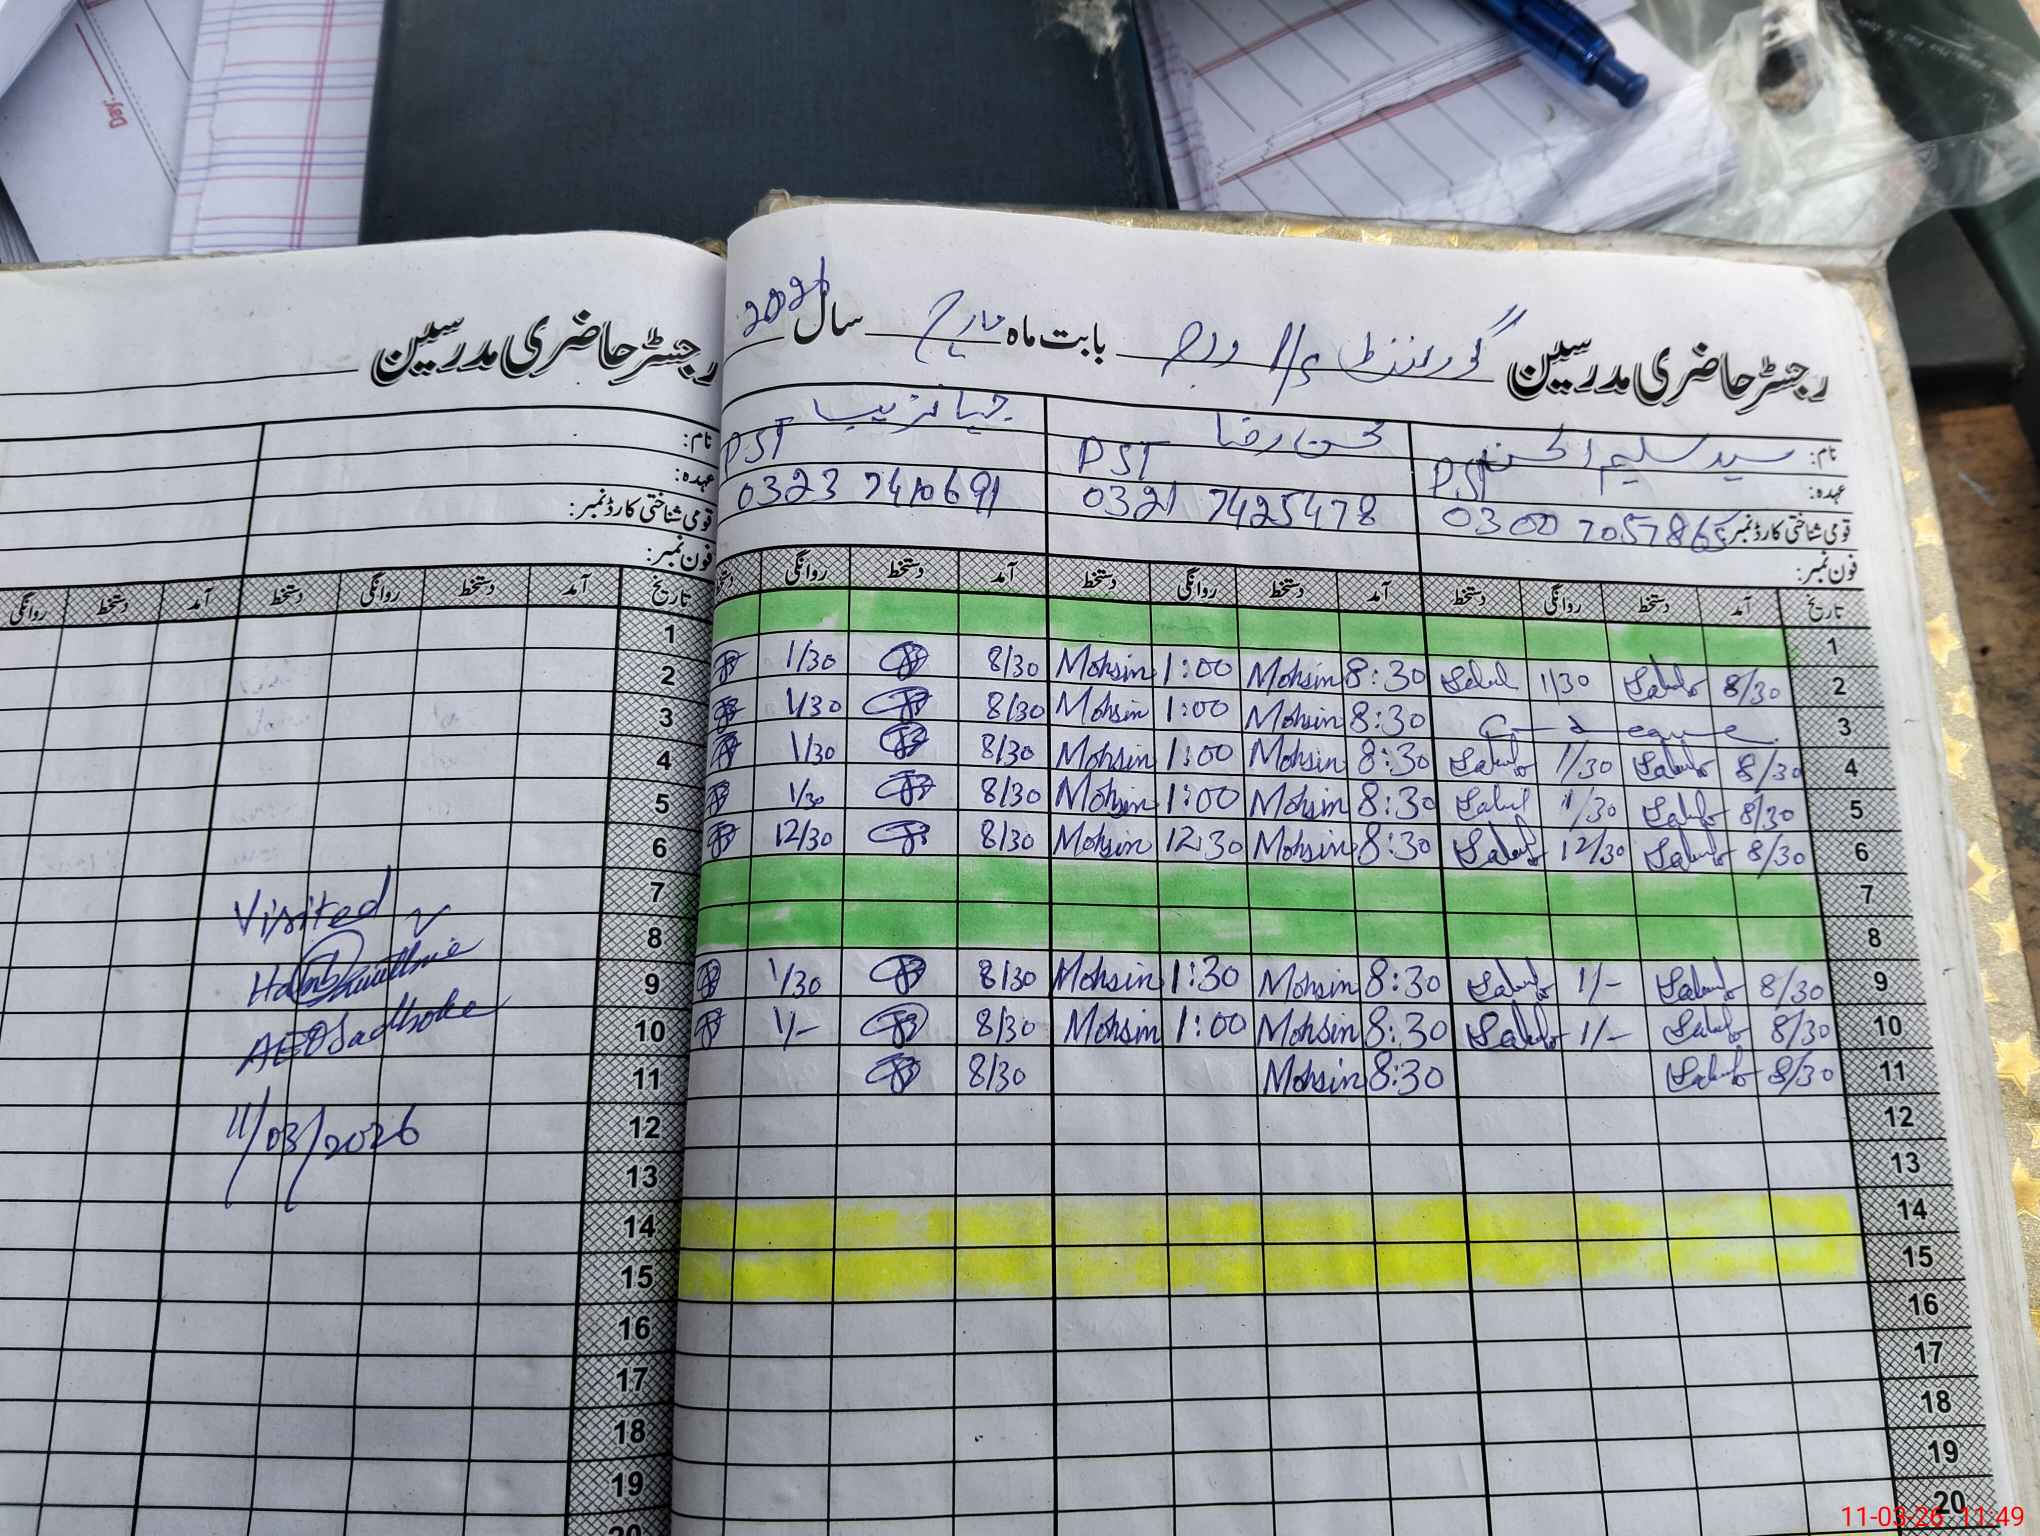 Day:
رجسٹر حاضری مدرسین
نام:
عہدہ:
قومی شناختی کارڈ نمبر:
فون نمبر:
تاریخ آمد دستخط روانگی دستخط آمد دستخط روانگی
1
2
3
4
5
6
7
8
9
10
11
12
13
14
15
16
17
18
19
20
Visited
AEO Sadhoke
11/03/2026
رجسٹر حاضری مدرسین گورنمنٹ بابت ماہ مارچ سال 2026
نام: سید سلیم الحسن محسن رضا
عہدہ: PST PST PST
قومی شناختی کارڈ نمبر: 0300 7057865 0321 7425478 0323 7410691
فون نمبر:
تاریخ آمد دستخط روانگی دستخط آمد دستخط روانگی دستخط آمد دستخط روانگی دستخط
1
2 8/30 1/30 8:30 Mohsin 1:00 Mohsin 8/30 1/30
3 8:30 Mohsin 1:00 Mohsin 8/30 1/30
4 8/30 1/30 8:30 Mohsin 1:00 Mohsin 8/30 1/30
5 8/30 1/30 8:30 Mohsin 1:00 Mohsin 8/30 1/30
6 8/30 12/30 8:30 Mohsin 12:30 Mohsin 8/30 12/30
7
8
9 8/30 1/- 8:30 Mohsin 1:30 Mohsin 8/30 1/30
10 8/30 1/- 8:30 Mohsin 1:00 Mohsin 8/30 1/-
11 8/30 8:30 Mohsin 8/30
12
13
14
15
16
17
18
19
20
11-03-26 11:49